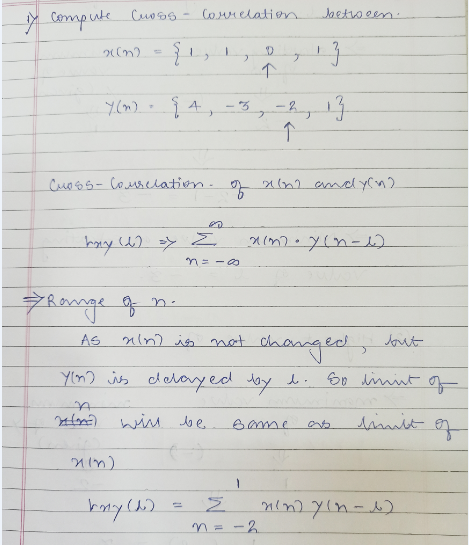 1) Compute Cross-Correlation between.
x(n) = {1, 1, 0, 1}
↑
y(n) = {4, -3, -2, 1}
↑
Cross-Correlation. of x(n) and y(n)
∞
rxy(l) => Σ x(n) . y(n-l)
n = -∞
⇒ Range of n.
As x(n) is not changed, but
y(n) is delayed by l. So limit of
n
x(n) will be same as limit of
x(n)
1
rxy(l) = Σ x(n) y(n-l)
n = -2